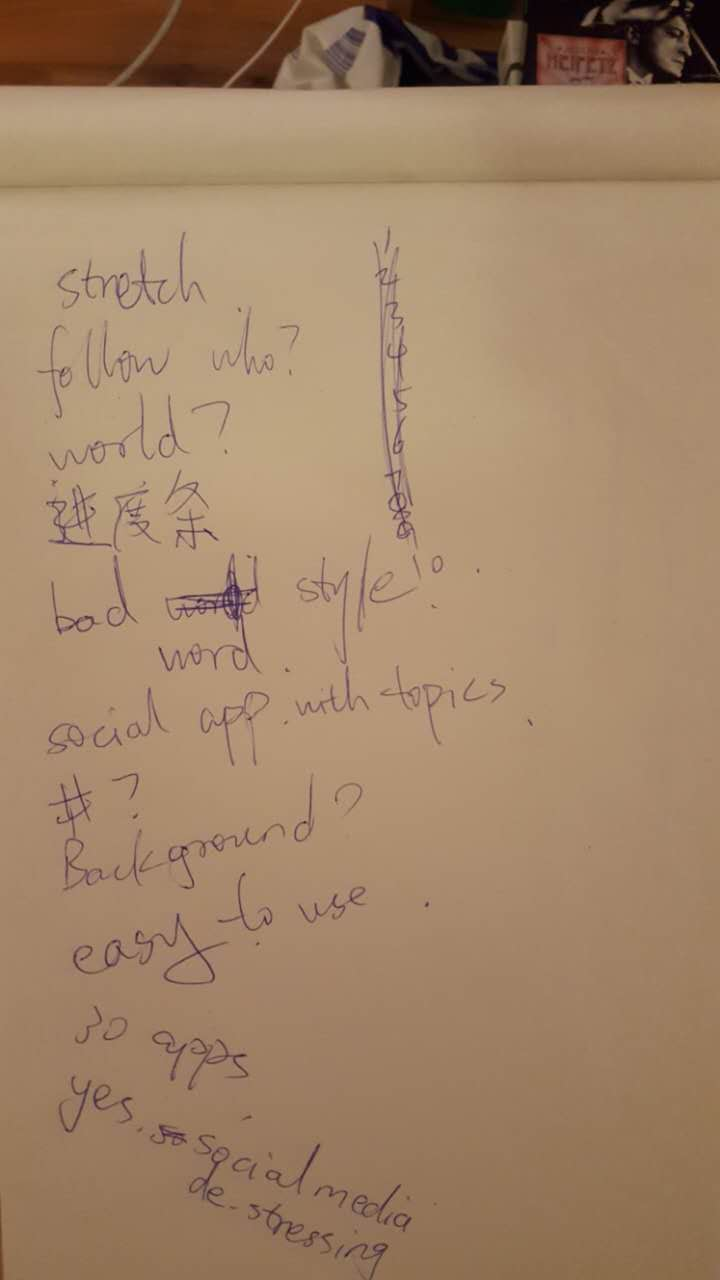 HEIFETZ
stretch
follow who?
world?
进度条
bad style!
word.
social app. with topics.
#?
Background?
easy to use.
30 apps
yes. social media
de-stressing
1
2
3
4
5
6
7
8
9
10